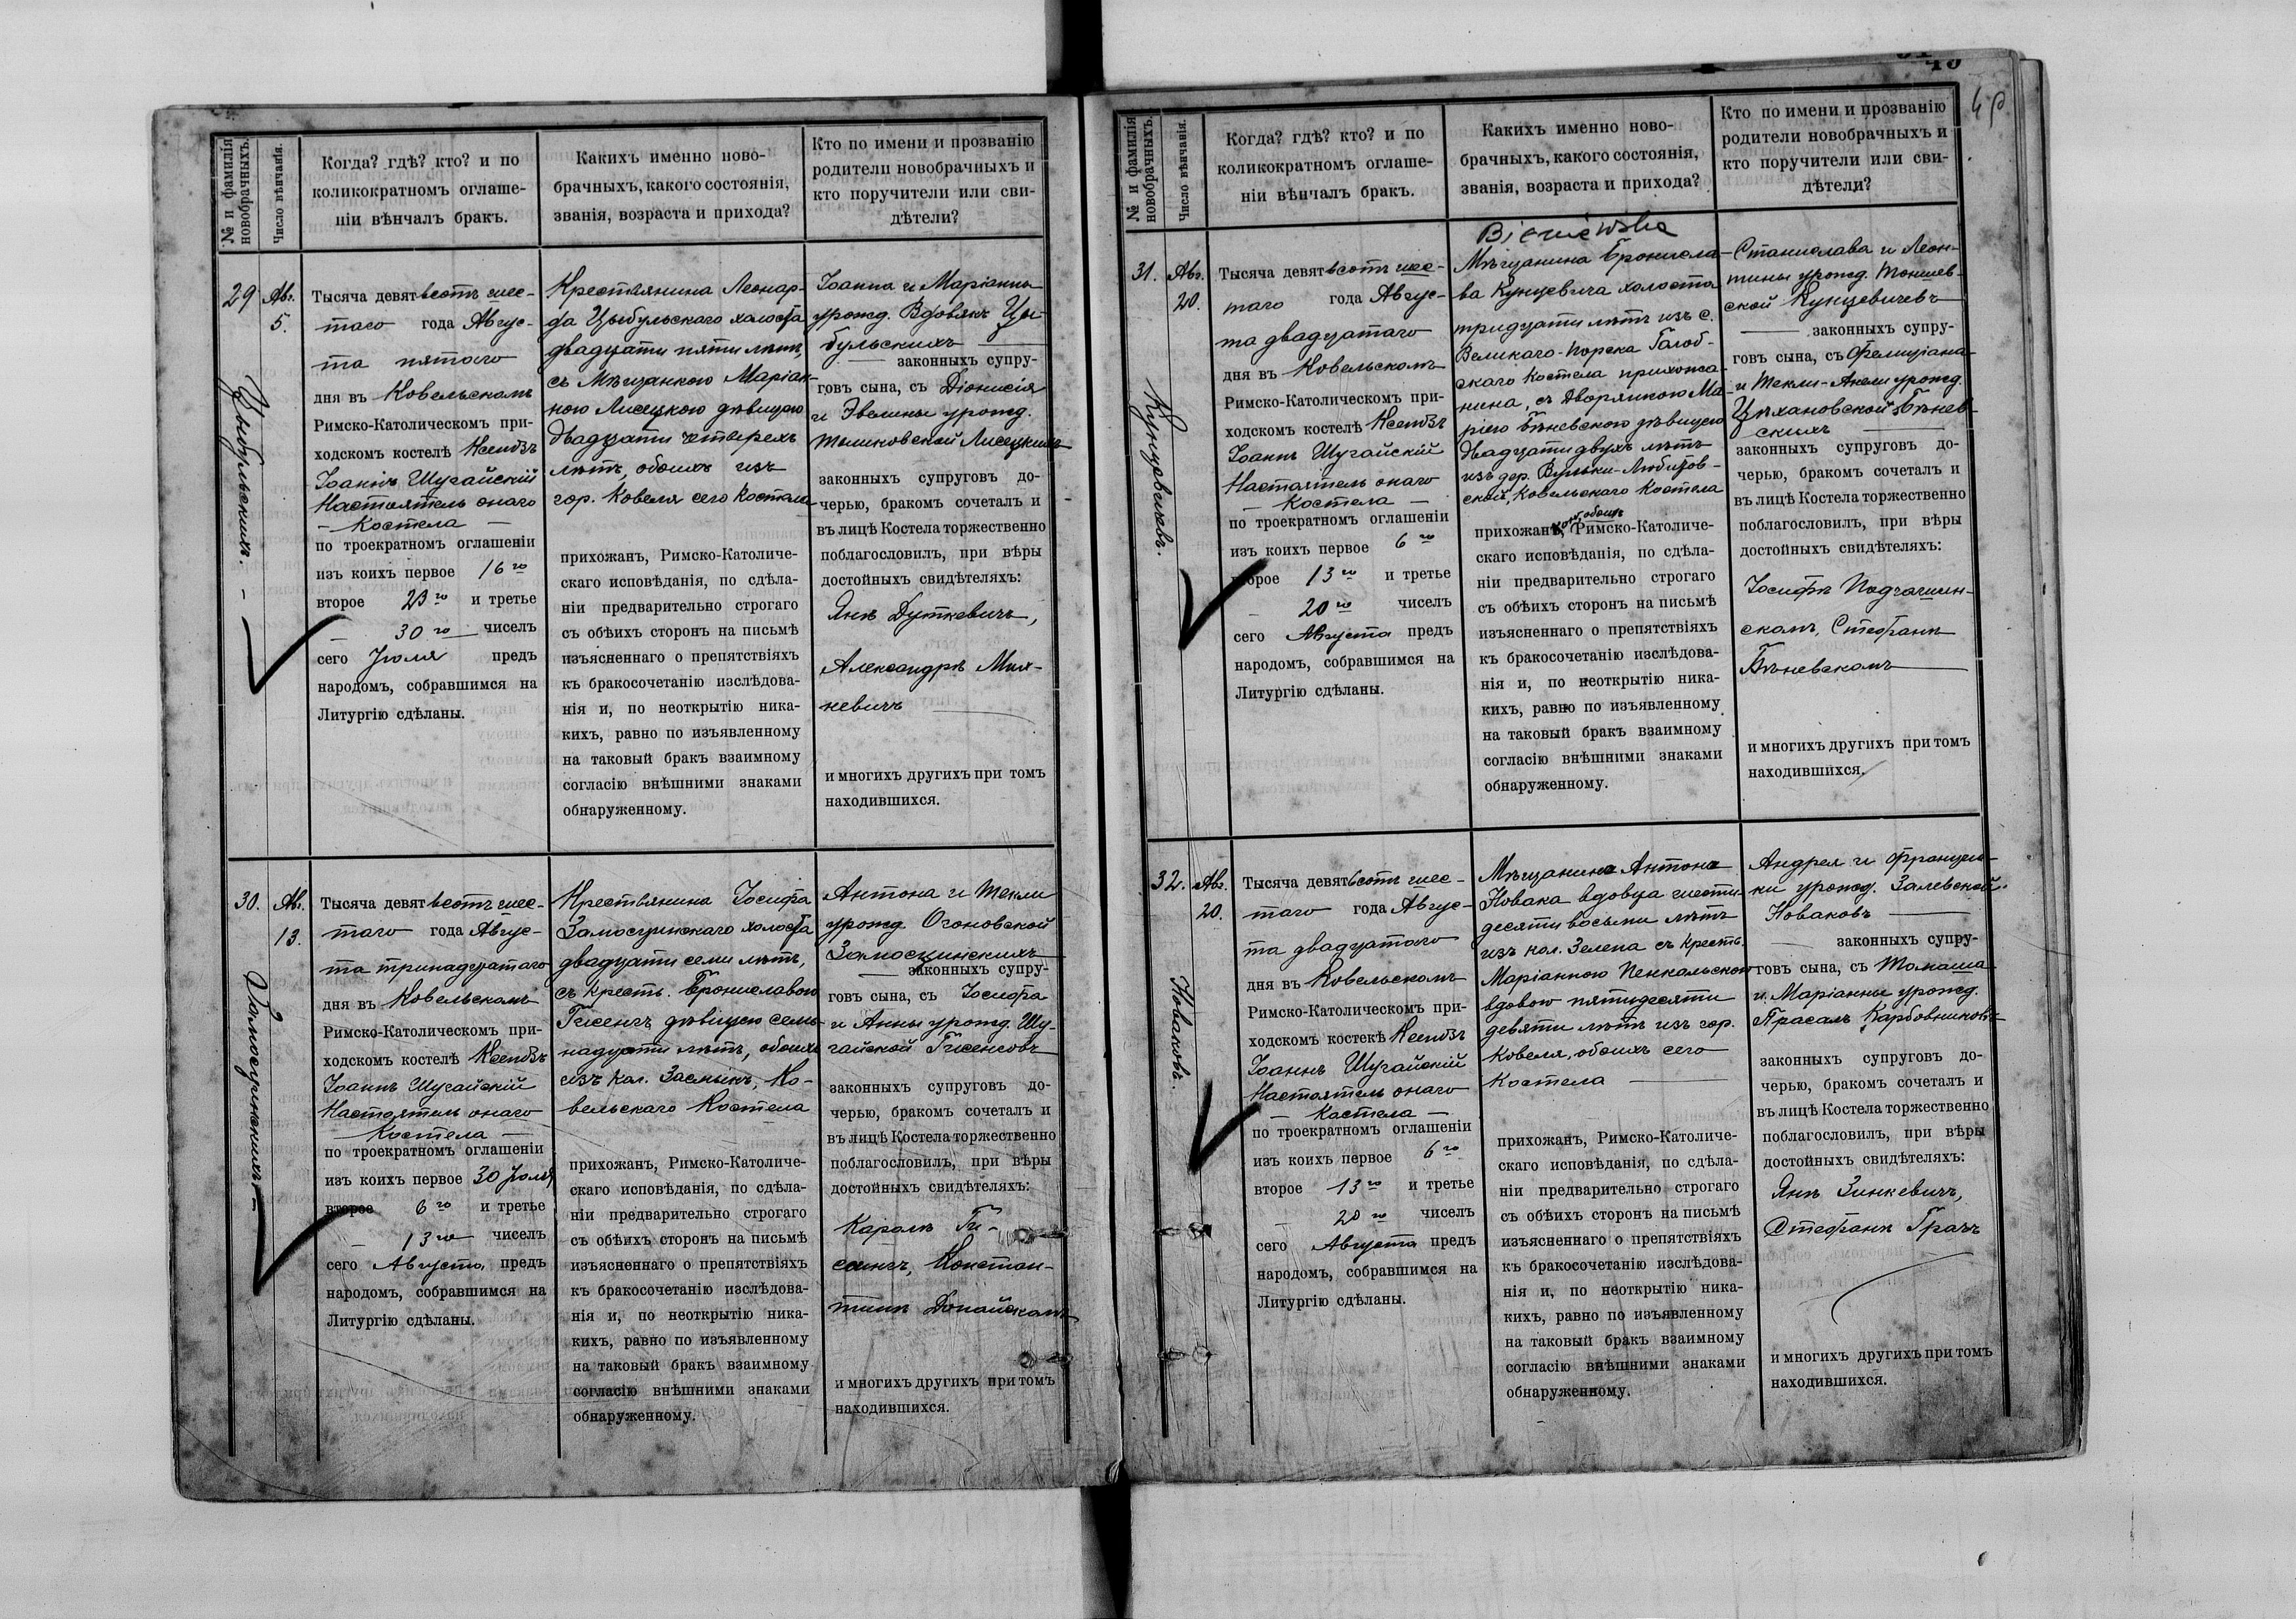 № и фамилія
новобрачныхъ.
Число вѣнчанія.
Когда? гдѣ? кто? и по
коликократномъ оглаше-
ніи вѣнчалъ бракъ.
Какихъ именно ново-
брачныхъ, какого состоянія,
званія, возраста и прихода?
Кто по имени и прозванію
родители новобрачныхъ и
кто поручители или сви-
дѣтели?
29
Цыбульскихъ. -
Авг.
5.
Тысяча девятьсотъ шес-
таго года Авгус-
та пятаго
дня въ Ковельскомъ
Римско-Католическомъ при-
ходскомъ костелѣ Ксендзъ
Іоаннъ Шугайскій
Настоятель онаго
- Костела -
по троекратномъ оглашеніи
изъ коихъ первое 16го
второе 23го и третье
30го чиселъ
сего Іюля предъ
народомъ, собравшимся на
Литургію сдѣланы.
Крестьянина Леонар-
да Цыбульскаго холоста
двадцати пяти лѣтъ,
съ Мѣщанкою Маріан-
ною Лисецкою дѣвицею
двадцати четырехъ
лѣтъ, обоихъ изъ
гор. Ковеля сего Костела
прихожанъ, Римско-Католиче-
скаго исповѣданія, по сдѣла-
ніи предварительно строгаго
съ обѣихъ сторонъ на письмѣ
изъясненнаго о препятствіяхъ
къ бракосочетанію изслѣдова-
нія и, по неоткрытію ника-
кихъ, равно по изъявленному
на таковый бракъ взаимному
согласію внѣшними знаками
обнаруженному.
Іоанна и Маріанны
урожд. Вдовякъ Цы-
бульскихъ
законныхъ супру-
говъ сына, съ Діонисія
и Эвелины урожд.
Лисецкихъ
законныхъ супруговъ до-
черью, бракомъ сочеталъ и
въ лицѣ Костела торжественно
поблагословилъ, при вѣры
достойныхъ свидѣтеляхъ:
Янъ Дуткевичъ,
Александръ Мих-
невичъ
и многихъ другихъ при томъ
находившихся.
30.
Замосцинскихъ. -
Ав.
13.
Тысяча девятьсотъ шес-
таго года Авгус-
та тринадцатаго
дня въ Ковельскомъ
Римско-Католическомъ при-
ходскомъ костелѣ Ксендзъ
Іоаннъ Шугайскій
Настоятель онаго
- Костела -
по троекратномъ оглашеніи
изъ коихъ первое 30 Іюля
второе 6го и третье
13го чиселъ
сего Августа предъ
народомъ, собравшимся на
Литургію сдѣланы.
Крестьянина Іосифа
Замосцинскаго холоста
двадцати семи лѣтъ,
съ крестъ. Брониславою
Гисенгъ дѣвицею семь-
надцати лѣтъ, обоихъ
изъ кол. Засмыкъ, Ко-
вельскаго Костела
прихожанъ, Римско-Католиче-
скаго исповѣданія, по сдѣла-
ніи предварительно строгаго
съ обѣихъ сторонъ на письмѣ
изъясненнаго о препятствіяхъ
къ бракосочетанію изслѣдова-
нія и, по неоткрытію ника-
кихъ, равно по изъявленному
на таковый бракъ взаимному
согласію внѣшними знаками
обнаруженному.
Антона и Текли
урожд. Огоновской
Замосцинскихъ
законныхъ супру-
говъ сына, съ Іосифа
и Анны урожд. Шу-
гайской Гисенговъ
законныхъ супруговъ до-
черью, бракомъ сочеталъ и
въ лицѣ Костела торжественно
поблагословилъ, при вѣры
достойныхъ свидѣтеляхъ:
Кароль Ги-
сенгъ, Констан-
тинъ
и многихъ другихъ при томъ
находившихся.
№ и фамилія
новобрачныхъ.
Число вѣнчанія.
Когда? гдѣ? кто? и по
коликократномъ оглаше-
ніи вѣнчалъ бракъ.
Какихъ именно ново-
брачныхъ, какого состоянія,
званія, возраста и прихода?
Кто по имени и прозванію
родители новобрачныхъ и
кто поручители или сви-
дѣтели?
31.
Кунцевичевъ.
Авг.
20.
Тысяча девятьсотъ шес-
таго года Авгус-
та двадцатаго
дня въ Ковельскомъ
Римско-Католическомъ при-
ходскомъ костелѣ Ксендзъ
Іоаннъ Шугайскій
Настоятель онаго
- Костела -
по троекратномъ оглашеніи
изъ коихъ первое 6го
второе 13го и третье
20го чиселъ
сего Августа предъ
народомъ, собравшимся на
Литургію сдѣланы.
Bieniewska
Мѣщанина Бронисла-
ва Кунцевича холоста
тридцати лѣтъ изъ с.
Великаго-Порска Голоб-
скаго Костела прихожа-
нина, съ Дворянкою Ма-
ріею Бѣневскою дѣвицею
двадцати двухъ лѣтъ
изъ дер. Вульки-Любитов-
ской, Ковельскаго Костела
прихожан, обоихъ Римско-Католиче-
скаго исповѣданія, по сдѣла-
ніи предварительно строгаго
съ обѣихъ сторонъ на письмѣ
изъясненнаго о препятствіяхъ
къ бракосочетанію изслѣдова-
нія и, по неоткрытію ника-
кихъ, равно по изъявленному
на таковый бракъ взаимному
согласію внѣшними знаками
обнаруженному.
Станислава и Леон-
тины урожд.
ской Кунцевичевъ
законныхъ супру-
говъ сына, съ Фелиціана
и Текли-Анели урожд.
Цѣхановской Бѣнев-
скихъ
законныхъ супруговъ до-
черью, бракомъ сочеталъ и
въ лицѣ Костела торжественно
поблагословилъ, при вѣры
достойныхъ свидѣтеляхъ:
Іосифъ Подгашин-
скомъ, Стефанъ
Бѣневскомъ
и многихъ другихъ при томъ
находившихся.
32.
Новаковъ.
Авг.
20.
Тысяча девятьсотъ шес-
таго года Авгус-
та двадцатаго
дня въ Ковельскомъ
Римско-Католическомъ при-
ходскомъ костекѣ Ксендзъ
Іоаннъ Шугайскій
Настоятель онаго
- Костела -
по троекратномъ оглашеніи
изъ коихъ первое 6го
второе 13го и третье
20го чиселъ
сего Августа предъ
народомъ, собравшимся на
Литургію сдѣланы.
Мѣщанина Антона
Новака вдовца шести-
десяти восьми лѣтъ
изъ кол. Зелена съ крестъ.
Маріанною Пенкальскою
вдовою пятидесяти
девяти лѣтъ изъ гор.
Ковеля, обоихъ сего
Костела
прихожанъ, Римско-Католиче-
скаго исповѣданія, по сдѣла-
ніи предварительно строгаго
съ обѣихъ сторонъ на письмѣ
изъясненнаго о препятствіяхъ
къ бракосочетанію изслѣдова-
нія и, по неоткрытію ника-
кихъ, равно по изъявленному
на таковый бракъ взаимному
согласію внѣшними знаками
обнаруженному.
Андрея и Францыш-
ки урожд. Залевской
Новаковъ
законныхъ супру-
говъ сына, съ Томаша
и Маріанны урожд.
Карбовниковъ
законныхъ супруговъ до-
черью, бракомъ сочеталъ и
въ лицѣ Костела торжественно
поблагословилъ, при вѣры
достойныхъ свидѣтеляхъ:
Янъ Зинкевичъ,
Стефанъ Грачъ
и многихъ другихъ при томъ
находившихся.